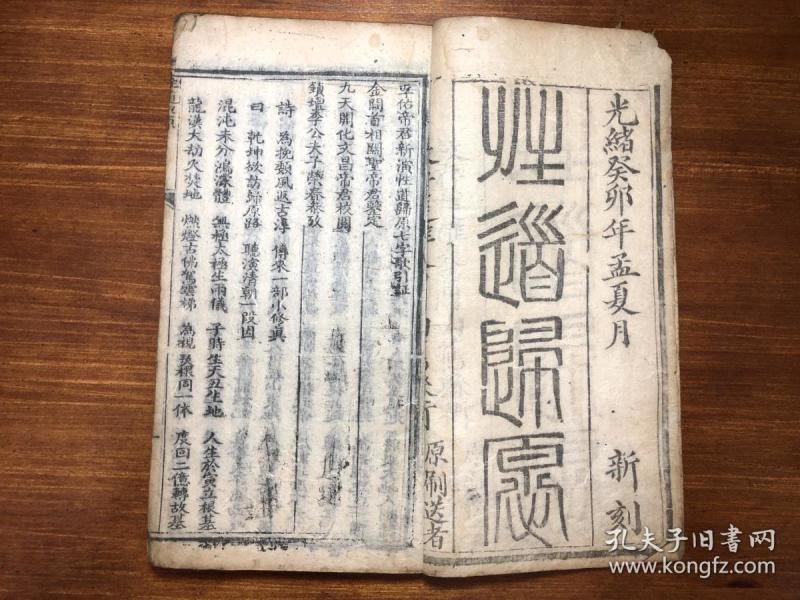 光緒癸卯年孟夏月 新刻
性道歸原
原刷送者
孚佑帝君新演性道歸原七字歌引証
金闕首相關聖帝君鑒定
九天開化文昌帝君校閱
鎮壇李公太子榮春恭攷
詩 為挽頽風返古淳 傳來一部小修真
曰 乾坤欲訪歸原路 聽演清朝一段因
混沌未分鴻濛體 無極太極生兩儀 子時生天丑生地 人生於寅立根基
龍漢大劫火焚地 燃燈古佛駕雲梯 為挽 同一体 度回二億轉故基
孔夫子旧书网
www.kongfz.com